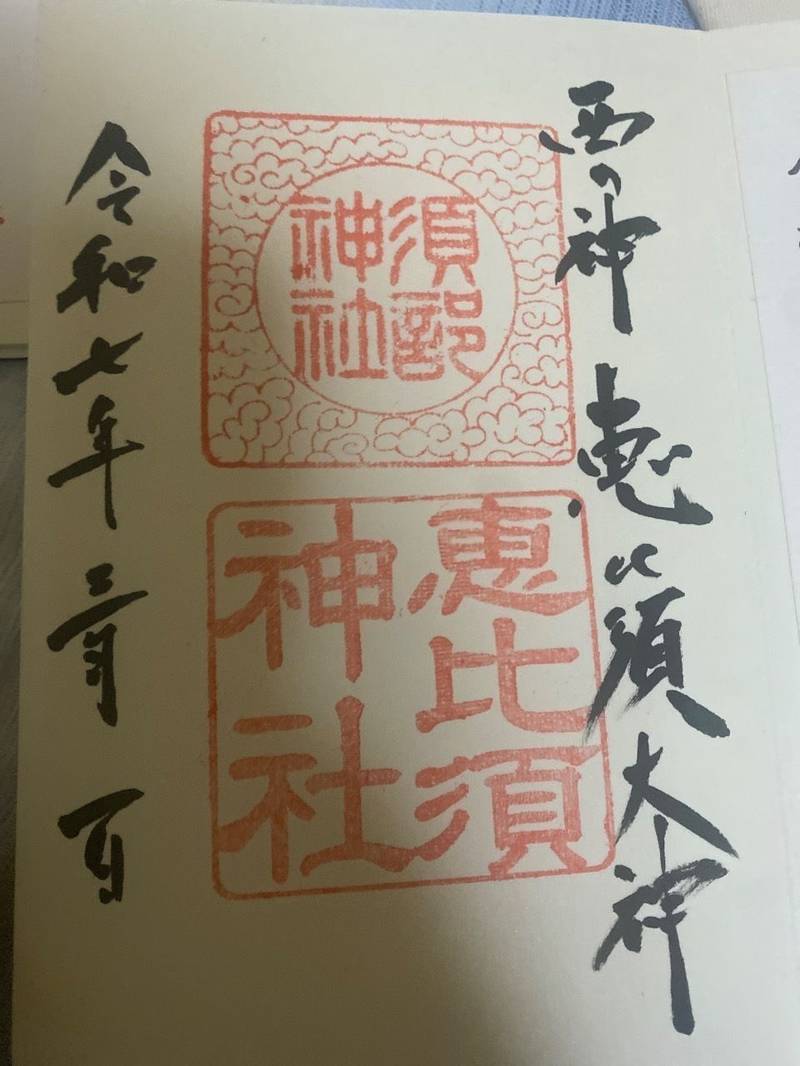 西の神 恵比須大神
須部
神社
惠比須
神社
令和七年三月一日